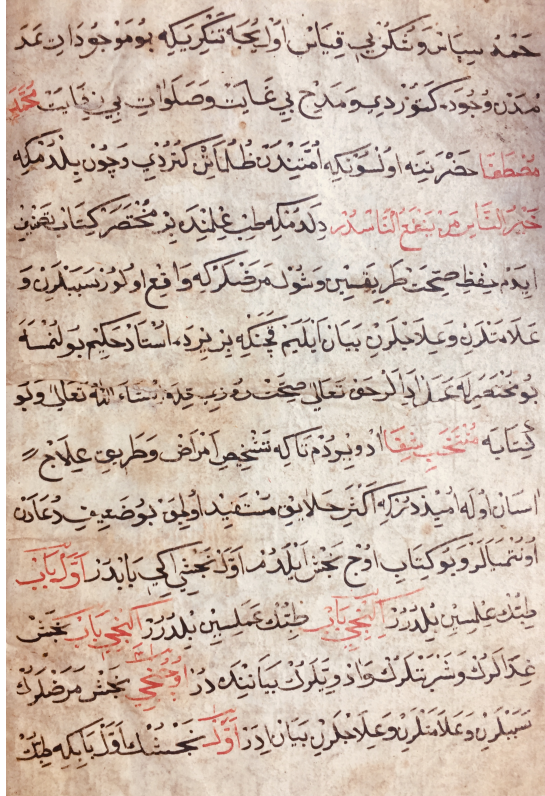 حَمْد سِپَاس وَشُكْر بِي قِيَاس اُول يُجَه تَنْكَرِيَه كِه بُو مَوْجُودَاتِ عَدَ
مْدَن وُجُودَه كَتُورْدِي وَمَدْح بِي غَايَت وَصَلَوَاتِ بِي نِهَايَت مُحَمَّد
مُصْطَفَا حَضْرَتِنَه اُولْسُونْكِه اُمَّتِنْدَن ظُلُمَاتِن كَتُرْدِي وَچُون بِلْدُمْكِه
خَيْرُ النَّاسِ مَنْ يَنْفَعُ النَّاسَدُرْ دِلَدُمْكِه طِب عِلْمِنْدَه بِر مُخْتَصَر كِتَاب
ايدَم حِفْظِ صِحَّت طَرِيقَسِين وَشُول مَرَضْلَرْكِه وَاقِع اُولُور سَبَبْلَرِن وَ
عَلَامَتْلَرِن وَعِلَاجْلَرِن بَيَان اَيْلَيَم قَچَنْكِه بِر يِرْدَه اُسْتَاد حَكِيم بُولُنْمَسَه
بُو مُخْتَصَرلَه عَمَل اِدَالَر حَق تَعَالَى صِحَّت رُوزِي قِلَه اِنْشَاءَ اللهُ تَعَالَى وَبُو
كِتَابَه مُنْتَخَبِ شِفَا اد ويردُم تَا كِه تَشْخِيصِ اَمْرَاض وَطَرِيقِ عِلَاج
اسَان اُولَه اُمِيذْدُرْكِه اَكْثَرِ خَلَايِق مُسْتَفِيد اُولِجَق بُو ضَعِيفِ دُعَادَن
اُونُتْمَيَالَر وَبُو كِتَابِ اُوچ بَخْش اَيْلَدُم اَوَّل بَخْشِي اِكِي بَابْدُر اَوَّل بَاب
طِبُّك عِلْمِسِين بِلْدُرُر اِكِنْجِي بَاب طِبُّك عَمَلِسِين بِلْدُرُر اِكِنْجِي بَاب بَخْش
غِدَالَرُك وَشَرْبَتْلَرُك وَادْوِيَلَرُك بَيَانِنْدَه دُر اُوچُنْجِي بَخْش مَرَضْلَرُك
سَبَبْلَرِن وَعَلَامَتْلَرِن وَعِلَاجْلَرِن بَيَان اِدَر اَوَّلْ بَخْشُنْك اَوَّل بَابِكِه طِبُّك